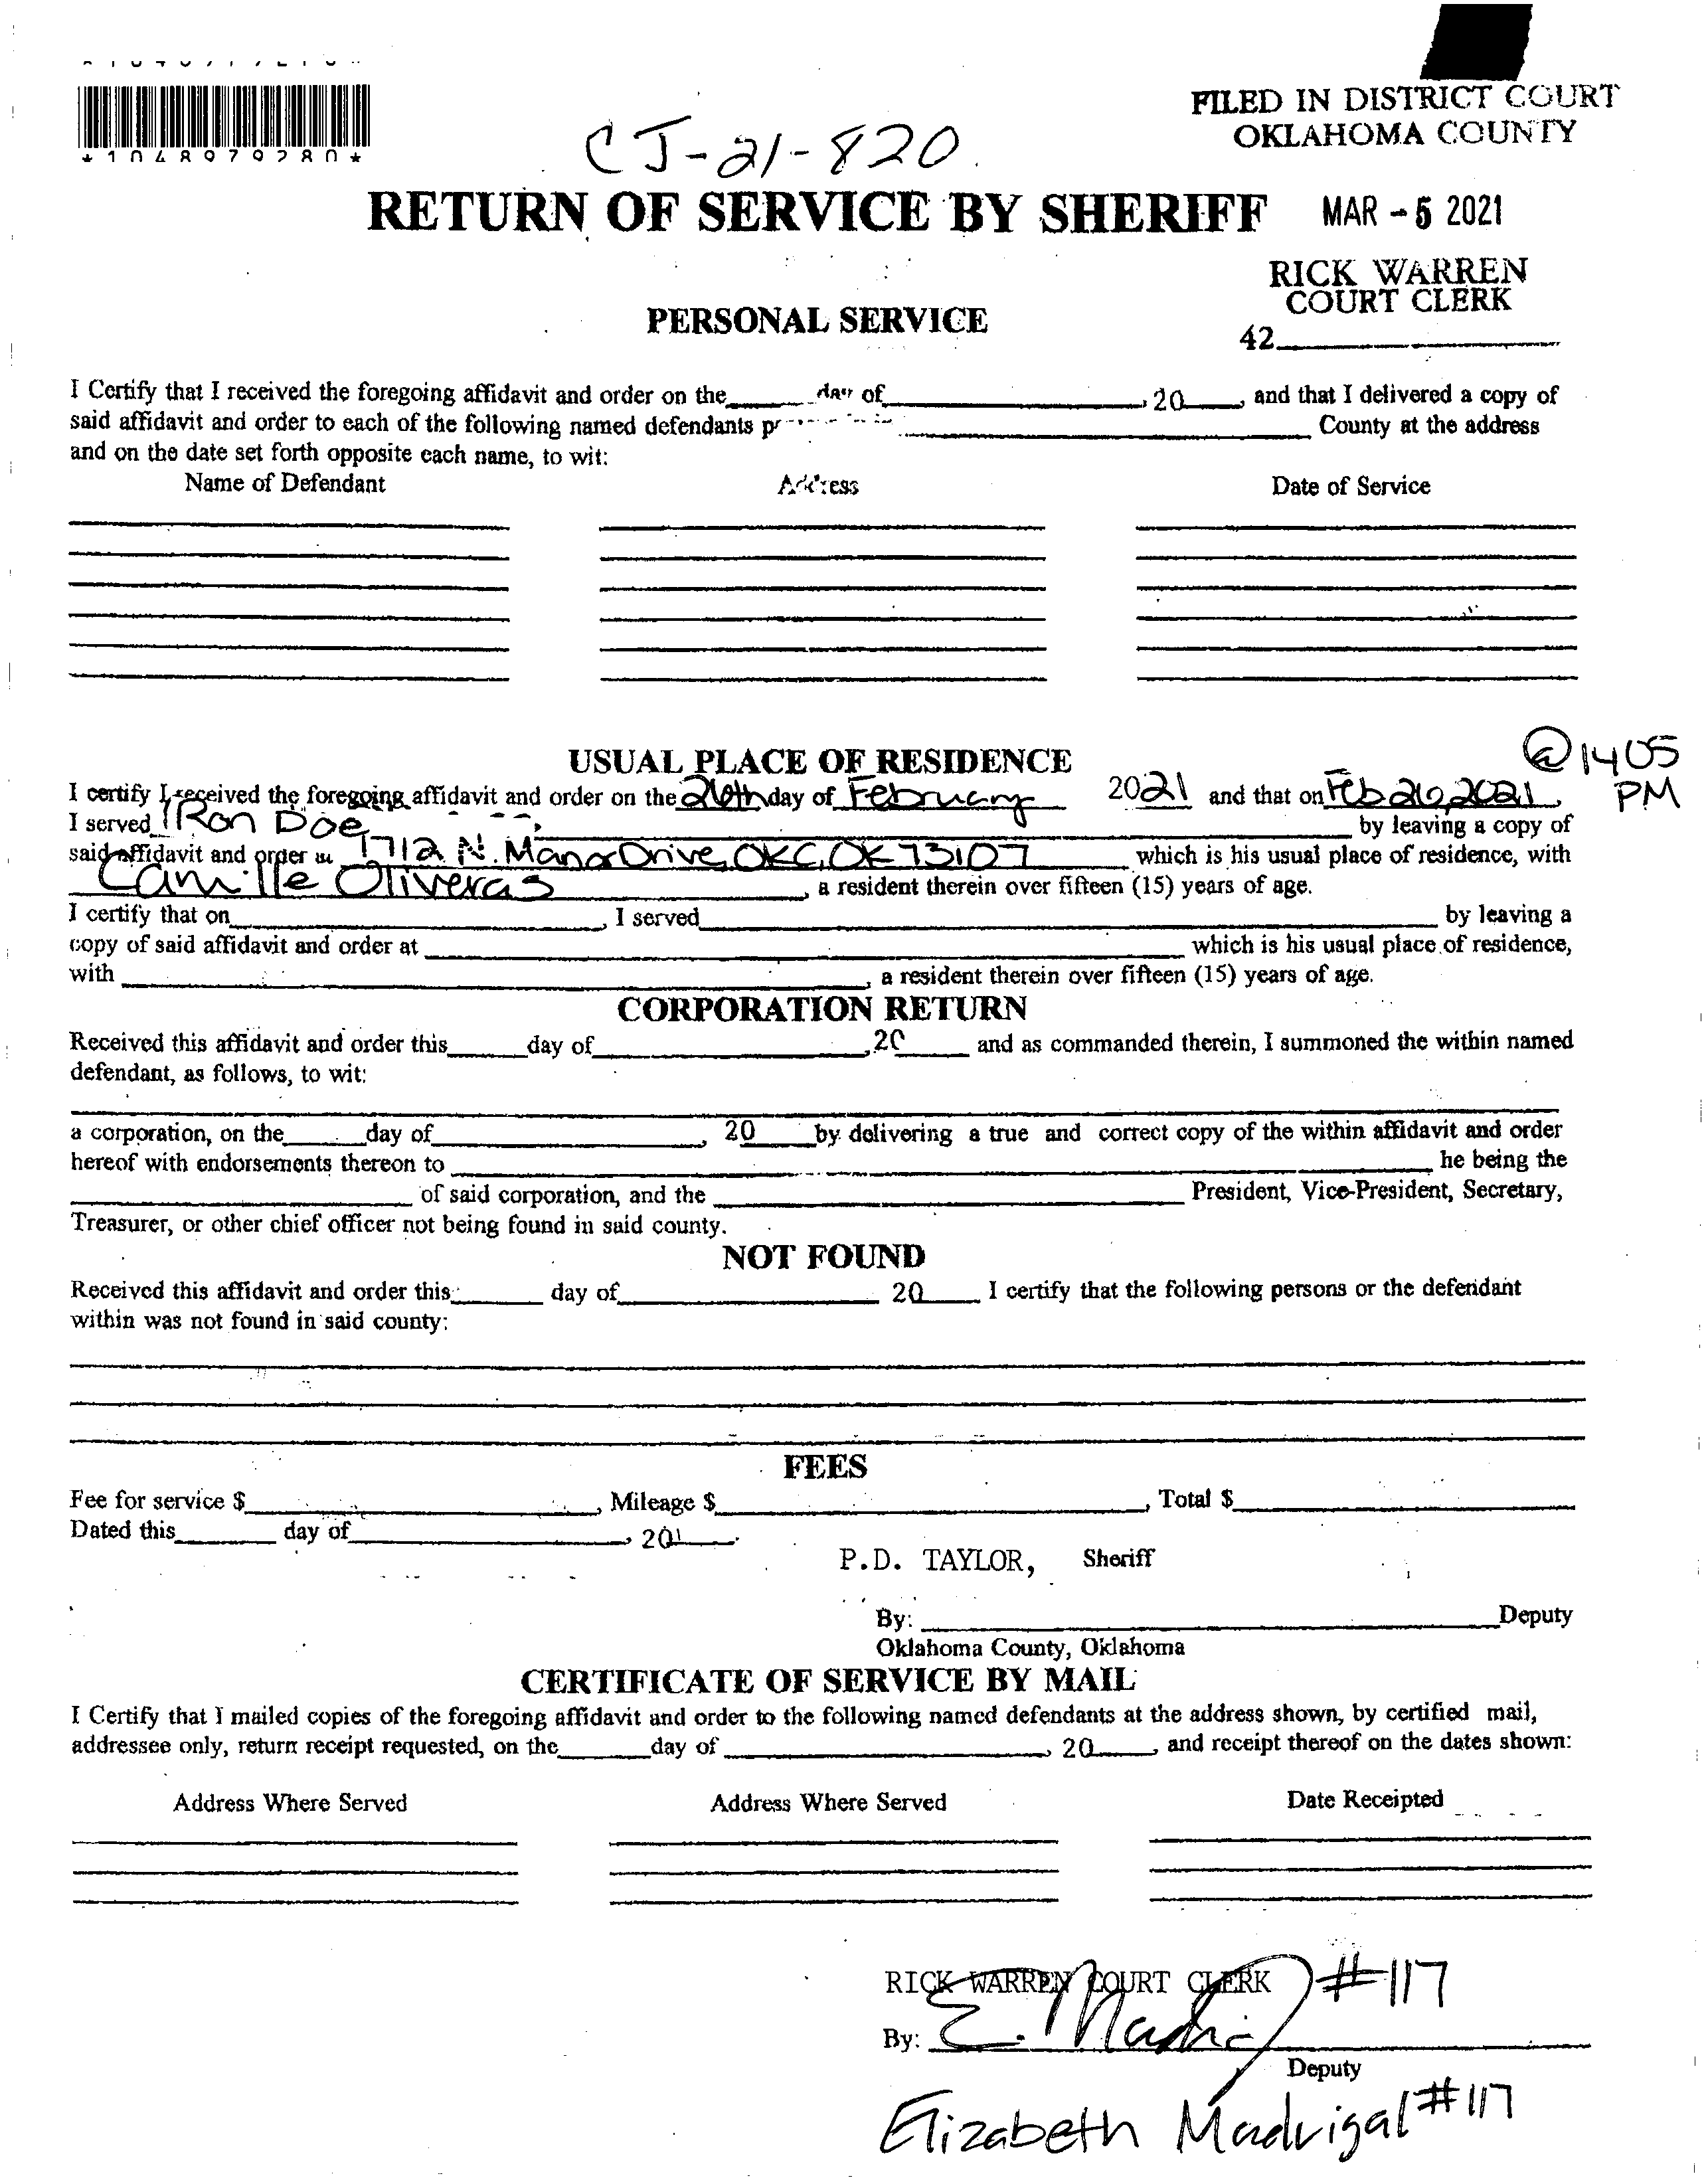 *1048979280*
FILED IN DISTRICT COURT
OKLAHOMA COUNTY
CJ-21-820
RETURN OF SERVICE BY SHERIFF
MAR - 5 2021
RICK WARREN
COURT CLERK
42
PERSONAL SERVICE
I Certify that I received the foregoing affidavit and order on the day of , 20 , and that I delivered a copy of
said affidavit and order to each of the following named defendants County at the address
and on the date set forth opposite each name, to wit:
Name of Defendant Address Date of Service
@1405
PM
USUAL PLACE OF RESIDENCE
I certify I received the foregoing affidavit and order on the 26th day of February 2021 and that on Feb 26, 2021,
I served Ron Doe by leaving a copy of
said affidavit and order 1712 N. Manor Drive, OKC, OK 73107 which is his usual place of residence, with
Camille Oliveras, a resident therein over fifteen (15) years of age.
I certify that on , I served by leaving a
copy of said affidavit and order at which is his usual place of residence,
with , a resident therein over fifteen (15) years of age.
CORPORATION RETURN
Received this affidavit and order this day of , 20 and as commanded therein, I summoned the within named
defendant, as follows, to wit:
a corporation, on the day of , 20 by delivering a true and correct copy of the within affidavit and order
hereof with endorsements thereon to he being the
of said corporation, and the President, Vice-President, Secretary,
Treasurer, or other chief officer not being found in said county.
NOT FOUND
Received this affidavit and order this day of 20 I certify that the following persons or the defendant
within was not found in said county:
FEES
Fee for service $ , Mileage $ , Total $
Dated this day of , 20 .
P.D. TAYLOR, Sheriff
By: Deputy
Oklahoma County, Oklahoma
CERTIFICATE OF SERVICE BY MAIL
I Certify that I mailed copies of the foregoing affidavit and order to the following named defendants at the address shown, by certified mail,
addressee only, return receipt requested, on the day of , 20 , and receipt thereof on the dates shown:
Address Where Served Address Where Served Date Receipted
RICK WARREN COURT CLERK #117
By: E. Madrigal
Deputy
Elizabeth Madrigal #117